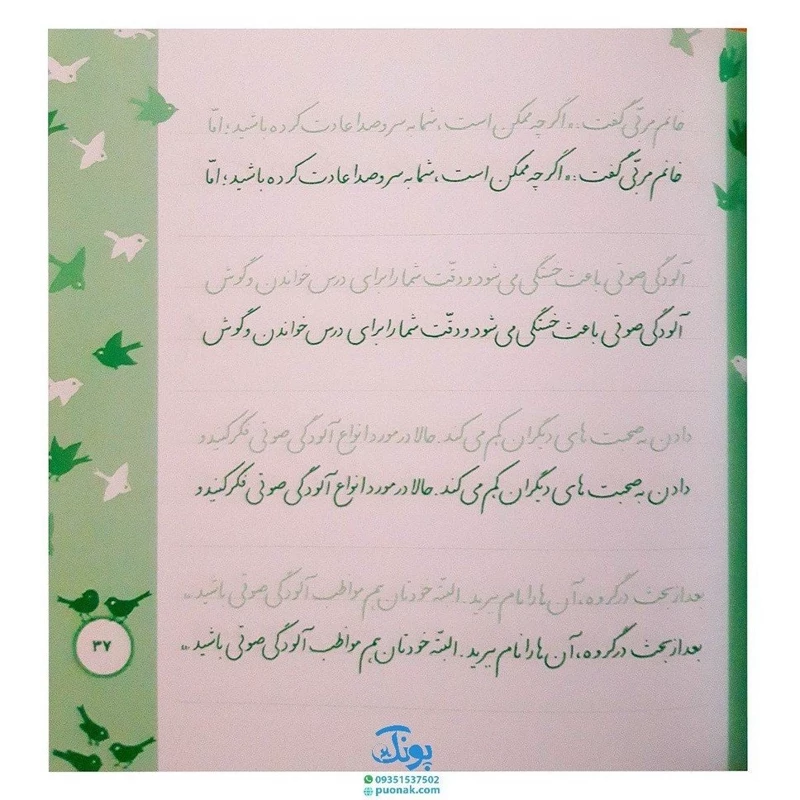 خانم مربّی گفت: «اگر چه ممکن است، شما به سر و صدا عادت کرده باشید؛ امّا
خانم مربّی گفت: «اگر چه ممکن است، شما به سر و صدا عادت کرده باشید؛ امّا
آلودگی صوتی باعث خستگی می شود و دقّت شما را برای درس خواندن و گوش
آلودگی صوتی باعث خستگی می شود و دقّت شما را برای درس خواندن و گوش
دادن به صحبت های دیگران کم می کند. حالا در مورد انواع آلودگی صوتی فکر کنید و
دادن به صحبت های دیگران کم می کند. حالا در مورد انواع آلودگی صوتی فکر کنید و
بعد از بحث در گروه، آن ها را نام ببرید. البتّه خودتان هم مواظب آلودگی صوتی باشید.»
بعد از بحث در گروه، آن ها را نام ببرید. البتّه خودتان هم مواظب آلودگی صوتی باشید.»
۳۷
پونک
09351537502
puonak.com